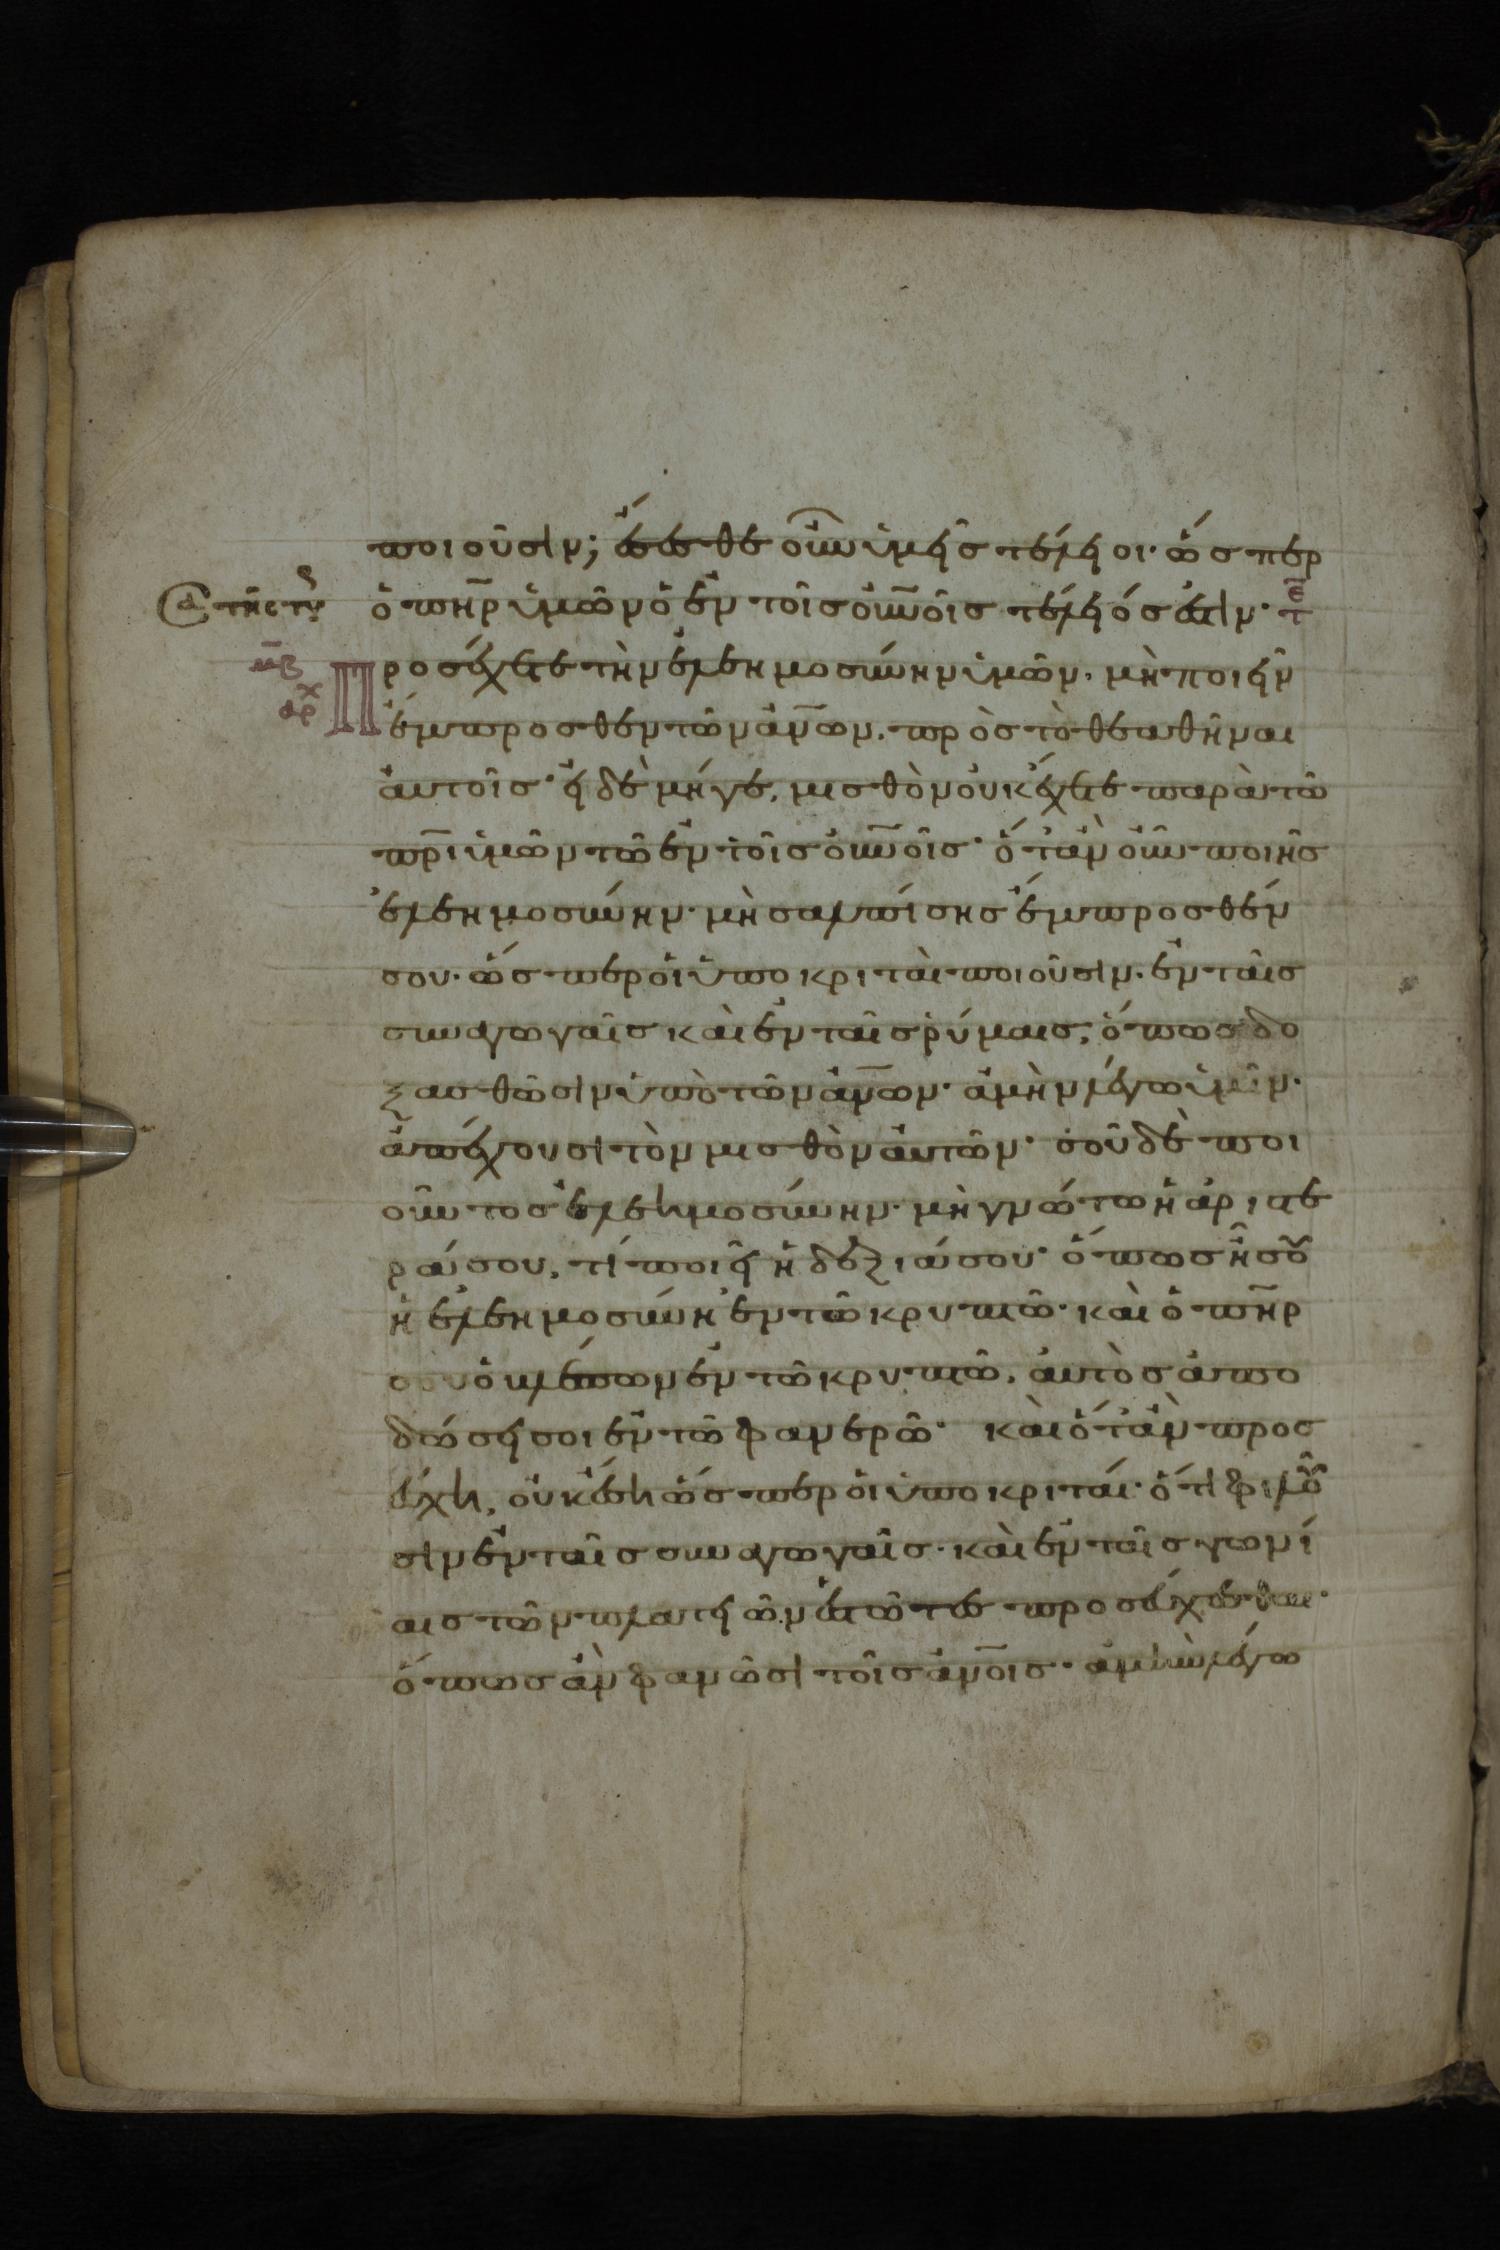 ποιοῦσιν; ἔσεσθε οὖν ὑμεῖς τέλειοι· ὥσπερ
ὁ πηρ ὑμῶν ὁ ἐν τοῖς οὐνοῖς τέλειός ἐστιν·
Προσέχετε τὴν ἐλεημοσύνην ὑμῶν· μὴ ποιεῖν
ἔμπροσθεν τῶν ἀνων. πρὸς τὸ θεαθῆναι
αὐτοῖς· εἰ δὲ μήγε, μισθὸν οὐκ ἔχετε παρὰ τῶ
πρι ὑμῶν τῶ ἐν τοῖς οὐνοῖς· ὅταν οὖν ποιῆς
ἐλεημοσύνην· μὴ σαλπίσης ἔμπροσθέν
σου· ὥσπερ οἱ ὑποκριταὶ ποιοῦσιν· ἐν ταῖς
συναγωγαῖς καὶ ἐν ταῖς ῥύμαις; ὅπως δο
ξασθῶσιν ὑπὸ τῶν ἀνων· ἀμὴν λέγω ὑμῖν·
ἀπέχουσι τὸν μισθὸν αὐτῶν· σοῦ δὲ ποι
οῦντος ἐλεημοσύνην· μὴ γνώτω ἡ ἀριστε
ρά σου, τί ποιεῖ ἡ δεξιά σου· ὅπως ἦ σοῦ
ἡ ἐλεημοσύνη ἐν τῶ κρυπτῶ· καὶ ὁ πηρ
σου ὁ βλέπων ἐν τῶ κρυπτῶ, αὐτὸς ἀπο
δώσει σοι ἐν τῶ φανερῶ· καὶ ὅταν προσ
εύχη, οὐκ ἔση ὥσπερ οἱ ὑποκριταί· ὅτι φιλοῦ
σιν ἐν ταῖς συναγωγαῖς· καὶ ἐν ταῖς γωνί
αις τῶν πλατειῶν ἑστῶτες προσεύχεσθαι·
ὅπως ἂν φανῶσι τοῖς ἀνοις· ἀμὴν λέγω